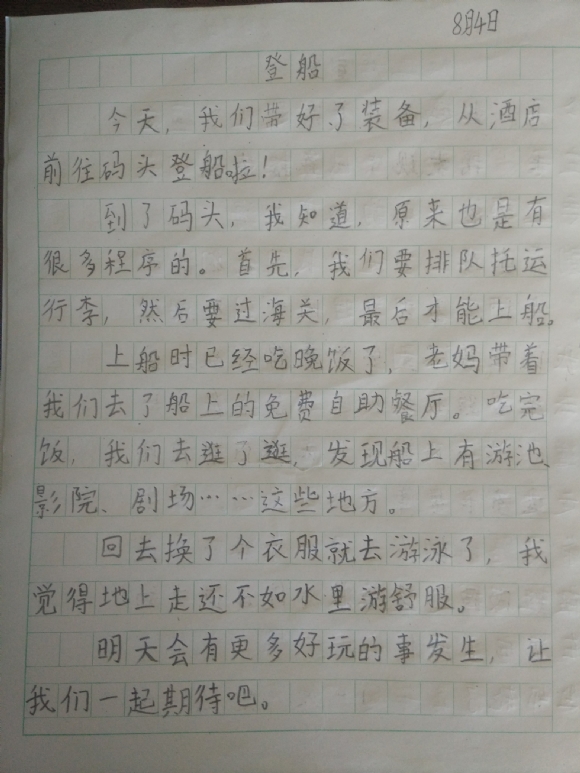 8月4日
登船
今天，我们带好了装备，从酒店
前往码头登船啦！
到了码头，我知道，原来也是有
很多程序的。首先，我们要排队托运
行李，然后要过海关，最后才能上船。
上船时已经吃晚饭了，老妈带着
我们去了船上的免费自助餐厅。吃完
饭，我们去逛了逛，发现船上有游池、
影院、剧场……这些地方。
回去换了个衣服就去游泳了，我
觉得地上走还不如水里游舒服。
明天会有更多好玩的事发生，让
我们一起期待吧。